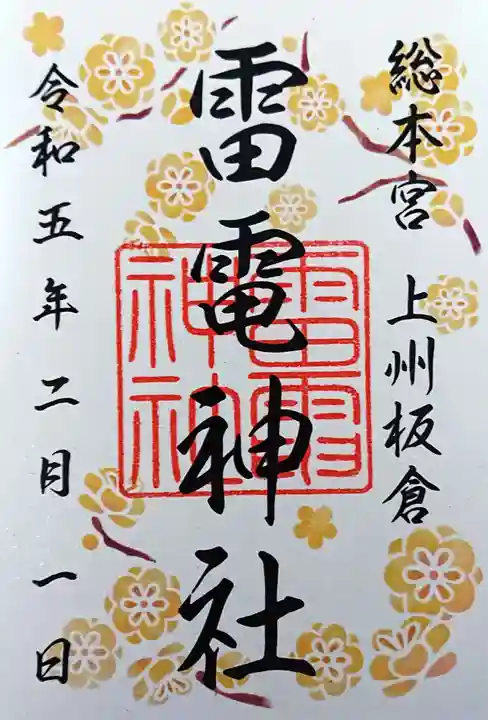 総本宮 上州板倉
雷電神社
雷電神社
令和五年 二月 一日